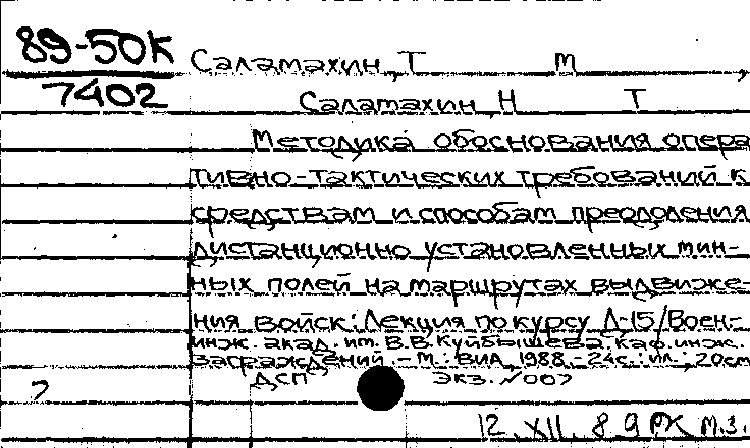 89-50К Саламахин, Т М ,
7402 Саламахин, Н Т
Методика обоснования опера
тивно-тактических требований к
средствам и способам преодоления
дистанционно установленных мин-
ных полей на маршрутах выдвиже-
ния войск: Лекция по курсу Д-15/Воен-
инж. акад. им. В.В. Куйбышева. Каф. инж.
заграждений. - М.: ВИА, 1988. - 24с.: ил.; 20см
ДСП экз. №007
12. XII. 89 РК М.З.